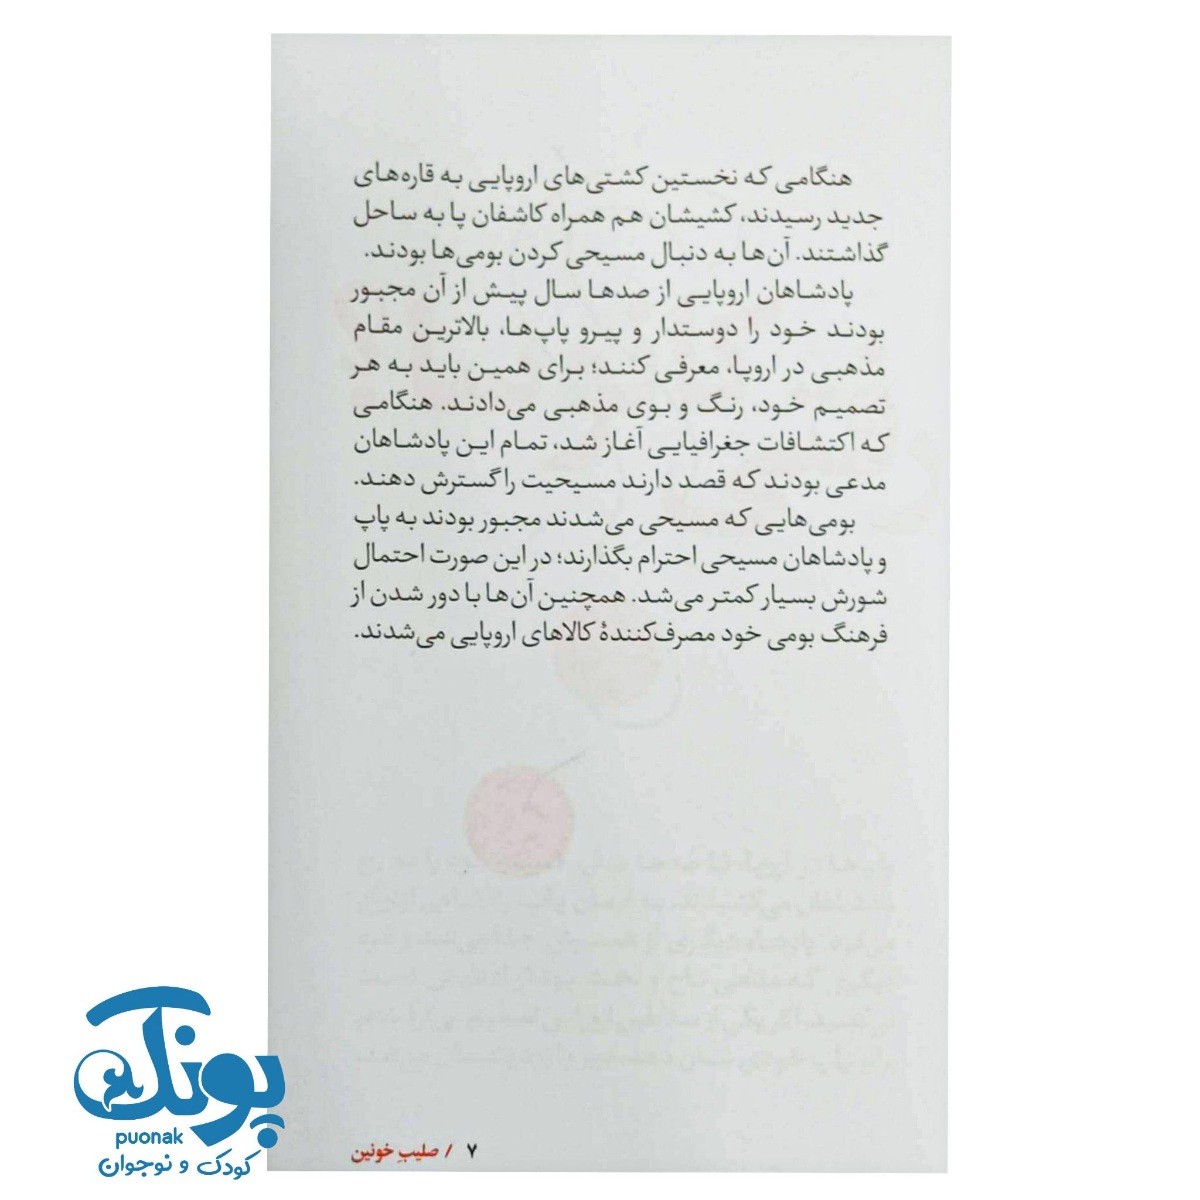 هنگامی که نخستین کشتی‌های اروپایی به قاره‌های
جدید رسیدند، کشیشان هم همراه کاشفان پا به ساحل
گذاشتند. آن‌ها به دنبال مسیحی کردن بومی‌ها بودند.
پادشاهان اروپایی از صدها سال پیش از آن مجبور
بودند خود را دوستدار و پیرو پاپ‌ها، بالاترین مقام
مذهبی در اروپا، معرفی کنند؛ برای همین باید به هر
تصمیم خود، رنگ و بوی مذهبی می‌دادند. هنگامی
که اکتشافات جغرافیایی آغاز شد، تمام این پادشاهان
مدعی بودند که قصد دارند مسیحیت را گسترش دهند.
بومی‌هایی که مسیحی می‌شدند مجبور بودند به پاپ
و پادشاهان مسیحی احترام بگذارند؛ در این صورت احتمال
شورش بسیار کمتر می‌شد. همچنین آن‌ها با دور شدن از
فرهنگ بومی خود مصرف‌کنندهٔ کالاهای اروپایی می‌شدند.
۷ / صلیبِ خونین
پونک
puonak
کودک و نوجوان